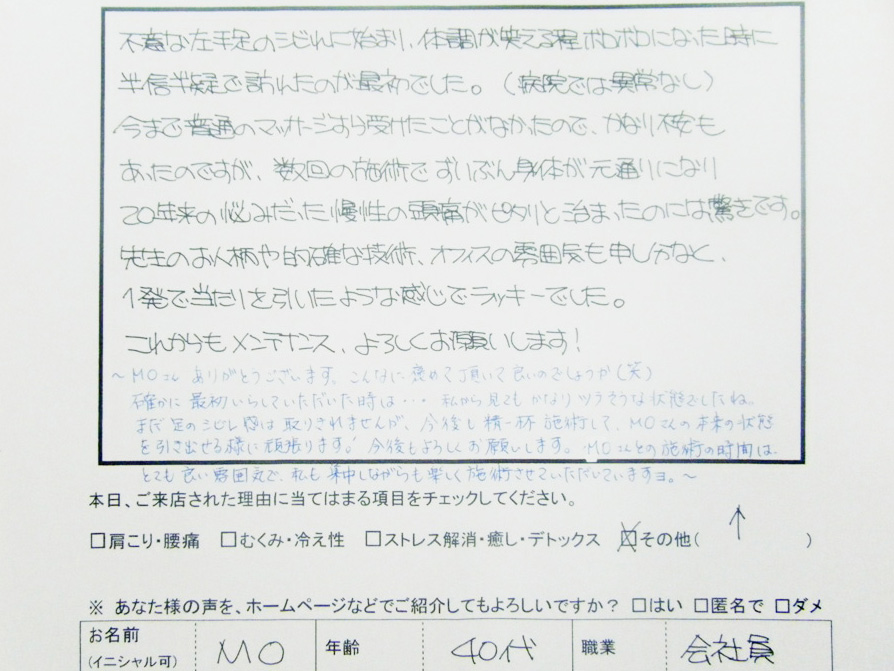 不意な左手足のシビれに始まり、体調が笑える程ボロボロになった時に
半信半疑で訪れたのが最初でした。(病院では異常なし)
今まで普通のマッサージすら受けたことがなかったので、かなり不安も
あったのですが、数回の施術でずいぶん身体が元通りになり
20年来の悩みだった慢性の頭痛がピタリと治まったのには驚きです。
先生のお人柄や的確な技術、オフィスの雰囲気も申し分なく、
1発で当たりを引いたような感じでラッキーでした。
これからもメンテナンス、よろしくお願いします!
~MOさん ありがとうございます。こんなに褒めて頂いて良いのでしょうか(笑)
確かに最初いらしていただいた時は… 私から見てもかなりツラそうな状態でしたね。
まだ足のシビレ感は取りきれませんが、今後も精一杯施術して、MOさんの本来の状態
を引き出せる様に頑張ります。今後もよろしくお願いします。MOさんとの施術の時間は、
とても良い雰囲気で、私も集中しながらも楽しく施術させていただいていますヨ。~
本日、ご来店された理由に当てはまる項目をチェックしてください。
□肩こり・腰痛 □むくみ・冷え性 □ストレス解消・癒し・デトックス ☒その他( ↑ )
※ あなた様の声を、ホームページなどでご紹介してもよろしいですか? □はい □匿名で □ダメ
お名前 (イニシャル可) MO 年齢 40代 職業 会社員